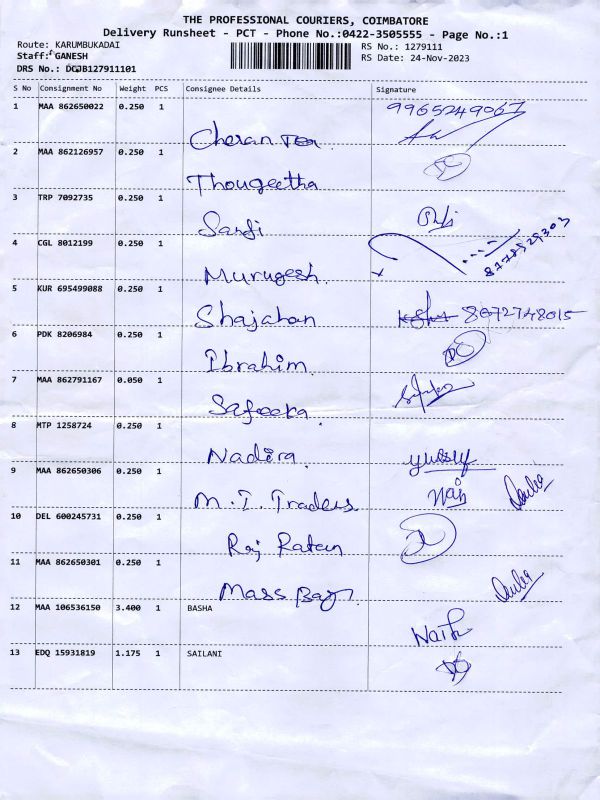 THE PROFESSIONAL COURIERS, COIMBATORE
Delivery Runsheet - PCT - Phone No.:0422-3505555 - Page No.:1
Route: KARUMBUKADAI RS No.: 1279111
Staff: GANESH RS Date: 24-Nov-2023
DRS No.: DCJB127911101
S No Consignment No Weight PCS Consignee Details Signature
1 MAA 862650022 0.250 1 9965249067
Cheran Tea
2 MAA 862126957 0.250 1
Thougeetha
3 TRP 7092735 0.250 1
Sanfi
4 CGL 8012199 0.250 1
Murugesh
5 KUR 695499088 0.250 1
Shajahan 8072748015
6 PDK 8206984 0.250 1
Ibrahim
7 MAA 862791167 0.050 1
Safeeka
8 MTP 1258724 0.250 1
Nadira yussuf
9 MAA 862650306 0.250 1
M.I. Traders
10 DEL 600245731 0.250 1
Raj Ratan
11 MAA 862650301 0.250 1
Mass Bag
12 MAA 106536150 3.400 1 BASHA
13 EDQ 15931819 1.175 1 SAILANI